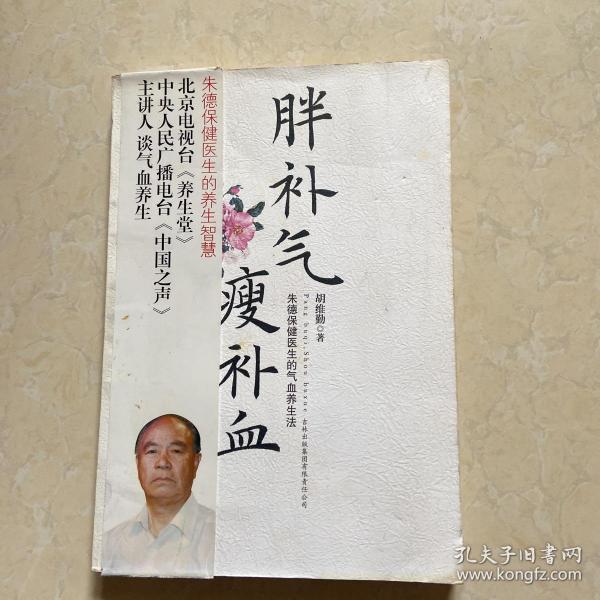 胖补气
瘦补血
胡维勤◎著
Pang buqi, Shou buxue
吉林出版集团有限责任公司
朱德保健医生的气血养生法
朱德保健医生的养生智慧
北京电视台《养生堂》
中央人民广播电台《中国之声》
主讲人 谈气血养生
孔夫子旧书网
www.kongfz.com